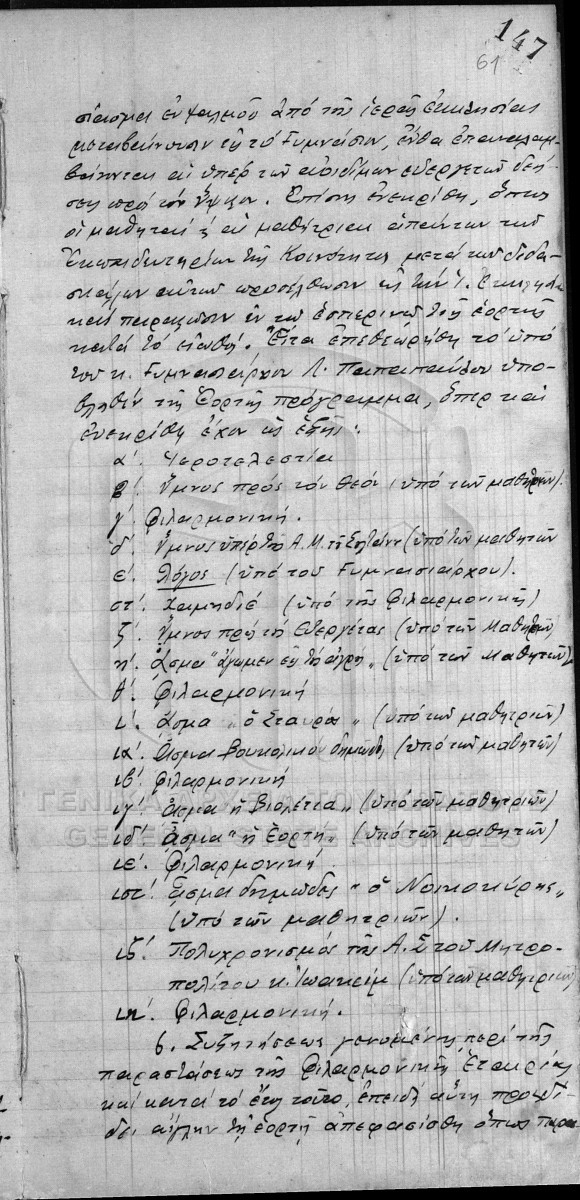 147
61
σιασμα ἐν ψαλμοῦ ἀπὸ τῆς ἱερᾶς ἐκκλησίας
μεταβαίνουσιν εἰς τὸ Γυμνάσιον, ἔνθα ἐπαναλαμ-
βάνονται αἱ ὑπὲρ τῶν ἀοιδίμων εὐεργετῶν δεή-
σεις πρὸς τὸν Ὕψιστον. Ἐπίσης ἐνεκρίθη, ὅπως
οἱ μαθηταὶ ϗ αἱ μαθήτριαι ἁπάντων τῶν
Ἐκπαιδευτηρίων τῆς Κοινότητος μετὰ τῶν διδα-
σκάλων αὐτῶν προσέλθωσιν εἰς τὴν Ἱ. Ἐκκλησίαν
καὶ παραμείνωσιν ἐν τῷ ἑσπερινῷ τῆς ἑορτῆς
κατὰ τὸ εἰωθός. Εἶτα ἐπεθεωρήθη τὸ ὑπὸ
τοῦ κ. Γυμνασιάρχου Λ. Παπαπαύλου ὑπο-
βληθὲν τῆς Ἑορτῆς πρόγραμμα, ὅπερ καὶ
ἐνεκρίθη ἔχον ὡς ἑξῆς:
α΄. Ἱεροτελεστία
β΄. Ὕμνος πρὸς τὸν Θεόν (ὑπὸ τῶν μαθητριῶν).
γ΄. Φιλαρμονική.
δ΄. Ὕμνος ὑπὲρ τῆς Α. Μ. τοῦ Σουλτάνου (ὑπὸ τῶν μαθητῶν
ε΄. Λόγος (ὑπὸ τοῦ Γυμνασιάρχου).
στ΄. Χαμηδιέ (ὑπὸ τῆς Φιλαρμονικῆς)
ζ΄. Ὕμνος πρὸς τοὺς Εὐεργέτας (ὑπὸ τῶν Μαθητῶν)
η΄. ᾎσμα "ἄγωμεν εἰς τοὺς ἀγρούς" (ὑπὸ τῶν Μαθητῶν)
θ΄. Φιλαρμονική
ι΄. ᾎσμα "ὁ Σταυρός" (ὑπὸ τῶν μαθητριῶν)
ια΄. ᾎσμα βουκολικὸν δημῶδες (ὑπὸ τῶν μαθητῶν)
ιβ΄. Φιλαρμονική
ιγ΄. ᾎσμα "ἡ Βιολέττα" (ὑπὸ τῶν μαθητριῶν)
ιδ΄. ᾎσμα "ἡ Ἑορτή" (ὑπὸ τῶν μαθητῶν)
ιε΄. Φιλαρμονική
ιστ΄. ᾎσμα δημῶδες "ὁ Νοικοκύρης"
(ὑπὸ τῶν μαθητριῶν).
ιζ΄. Πολυχρονισμὸς τῆς Α. Σ. τοῦ Μητρο-
πολίτου κ. Ἰωακείμ (ὑπὸ τῶν μαθητριῶν)
ιη΄. Φιλαρμονική.
6. Συζητήσεως γενομένης περὶ τῆς
παραστάσεως τῆς Φιλαρμονικῆς Ἑταιρίας
καὶ κατὰ τὸ ἔτος τοῦτο, ἐπειδὴ αὕτη προσδί-
δει αἴγλην τῇ ἑορτῇ ἀπεφασίσθη ὅπως παρα-